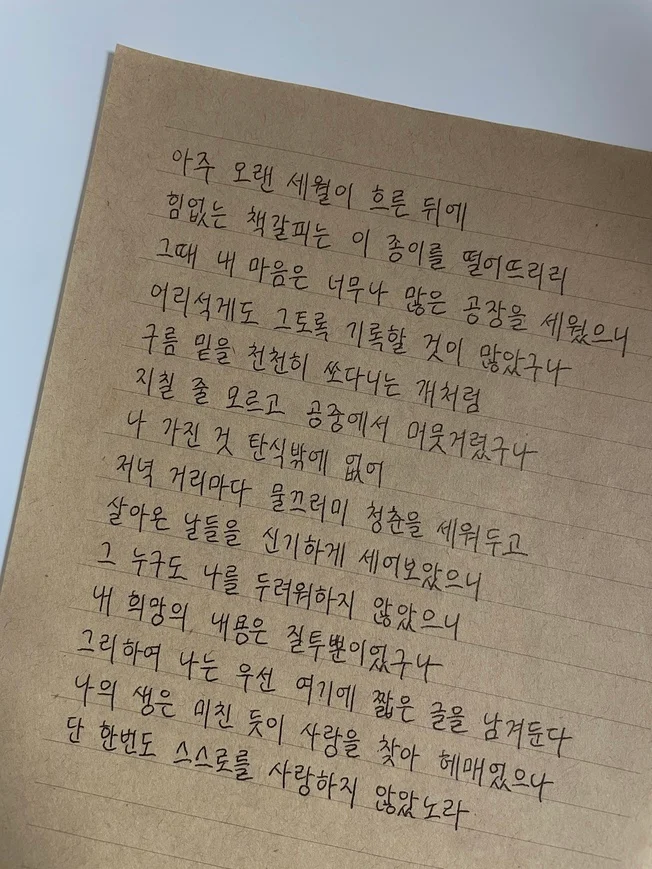 아주 오랜 세월이 흐른 뒤에
힘없는 책갈피는 이 종이를 떨어뜨리리
그때 내 마음은 너무나 많은 공장을 세웠으니
어리석게도 그토록 기록할 것이 많았구나
구름 밑을 천천히 쏘다니는 개처럼
지칠 줄 모르고 공중에서 머뭇거렸구나
나 가진 것 탄식밖에 없어
저녁 거리마다 물끄러미 청춘을 세워두고
살아온 날들을 신기하게 세어보았으니
그 누구도 나를 두려워하지 않았으니
내 희망의 내용은 질투뿐이었구나
그리하여 나는 우선 여기에 짧은 글을 남겨둔다
나의 생은 미친 듯이 사랑을 찾아 헤매었으나
단 한번도 스스로를 사랑하지 않았노라